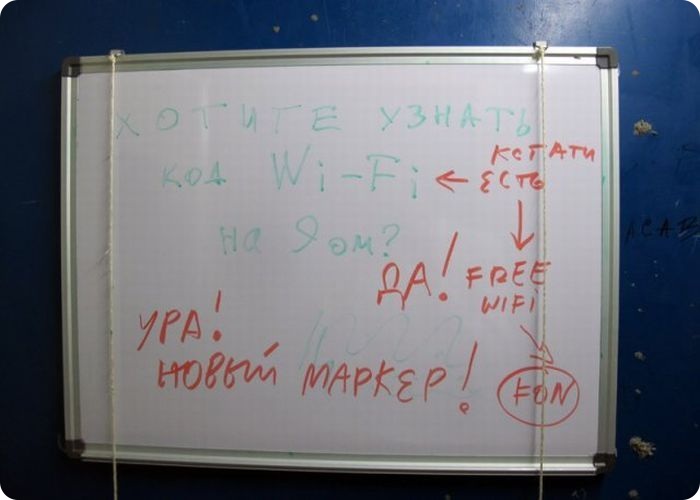 ХОТИТЕ УЗНАТЬ
КОД Wi-Fi
на 9 ом?
КСТАТИ
ЕСТЬ
ДА!
FREE
WIFI
FON
УРА!
НОВЫЙ МАРКЕР!
ACAB